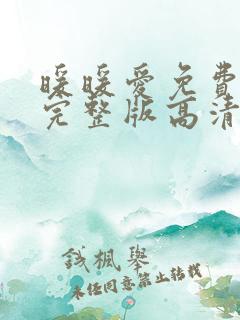 暖暖爱免費
完整版高清
钱楓舉
未经同意禁止转载